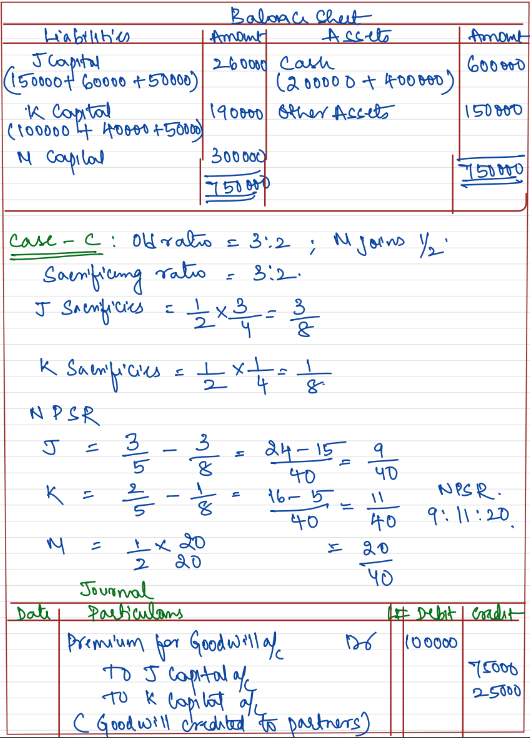 Balance Sheet
Liabilities Amount Assets Amount
J Capital 260000 Cash 600000
(150000+ 60000 +50000) (200000 + 400000)
K Capital 190000 Other Assets 150000
(100000 + 40000+50000)
M Capital 300000
750000 750000
Case - C : Old ratio = 3:2 ; M joins 1/2.
Sacrificing ratio = 3:2.
J Sacrificies = 1/2 × 3/4 = 3/8
K Sacrificies = 1/2 × 1/4 = 1/8
NPSR
J = 3/5 - 3/8 = 24-15/40 = 9/40
K = 2/5 - 1/8 = 16-5/40 = 11/40 NPSR.
9:11:20.
M = 1/2 × 20/20 = 20/40
Journal
Date Particulars Lf Debit Credit
Premium for Goodwill a/c Dr 100000
To J Capital a/c 75000
To K Capital a/c 25000
(Goodwill credited to partners)